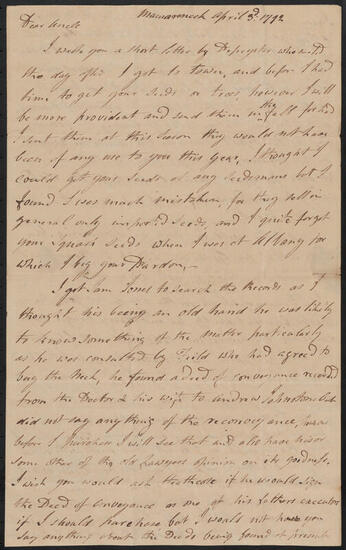 Mamaroneck April 3d. 1792
Dear Uncle
I wrote you a short letter by Depeyster who sail'd
the day after I got to town, and before I had
time to get your seeds or trees, however I will
be more provident and send them in the fall for had
I sent them at this season they would not have
been of any use to you this year, I thought I
could get your seeds of any Seedsmen but I
found I was much mistaken, for they sell in
general only imported seeds, and I quite forgot
your Squash seeds when I was at Albany for
which I beg your Pardon,
I got Sam Jones to search the Records as I
thought his being an old hand he was likely
to know something of the matter particularly
as he was consulted by Field who had agreed to
buy the Neck, he found a deed of conveyance recorded
from the Doctor & his wife to Andrew Johnston but
did not say anything of the reconveyance,
before I purchase I will see that and also have his or
some other of the old Lawyers opinion on its goodness,
I wish you would ask if he would sign
the Deed of conveyance as one of his Fathers executors
if I should purchase but I would not have you
say anything about the Deeds being found at present